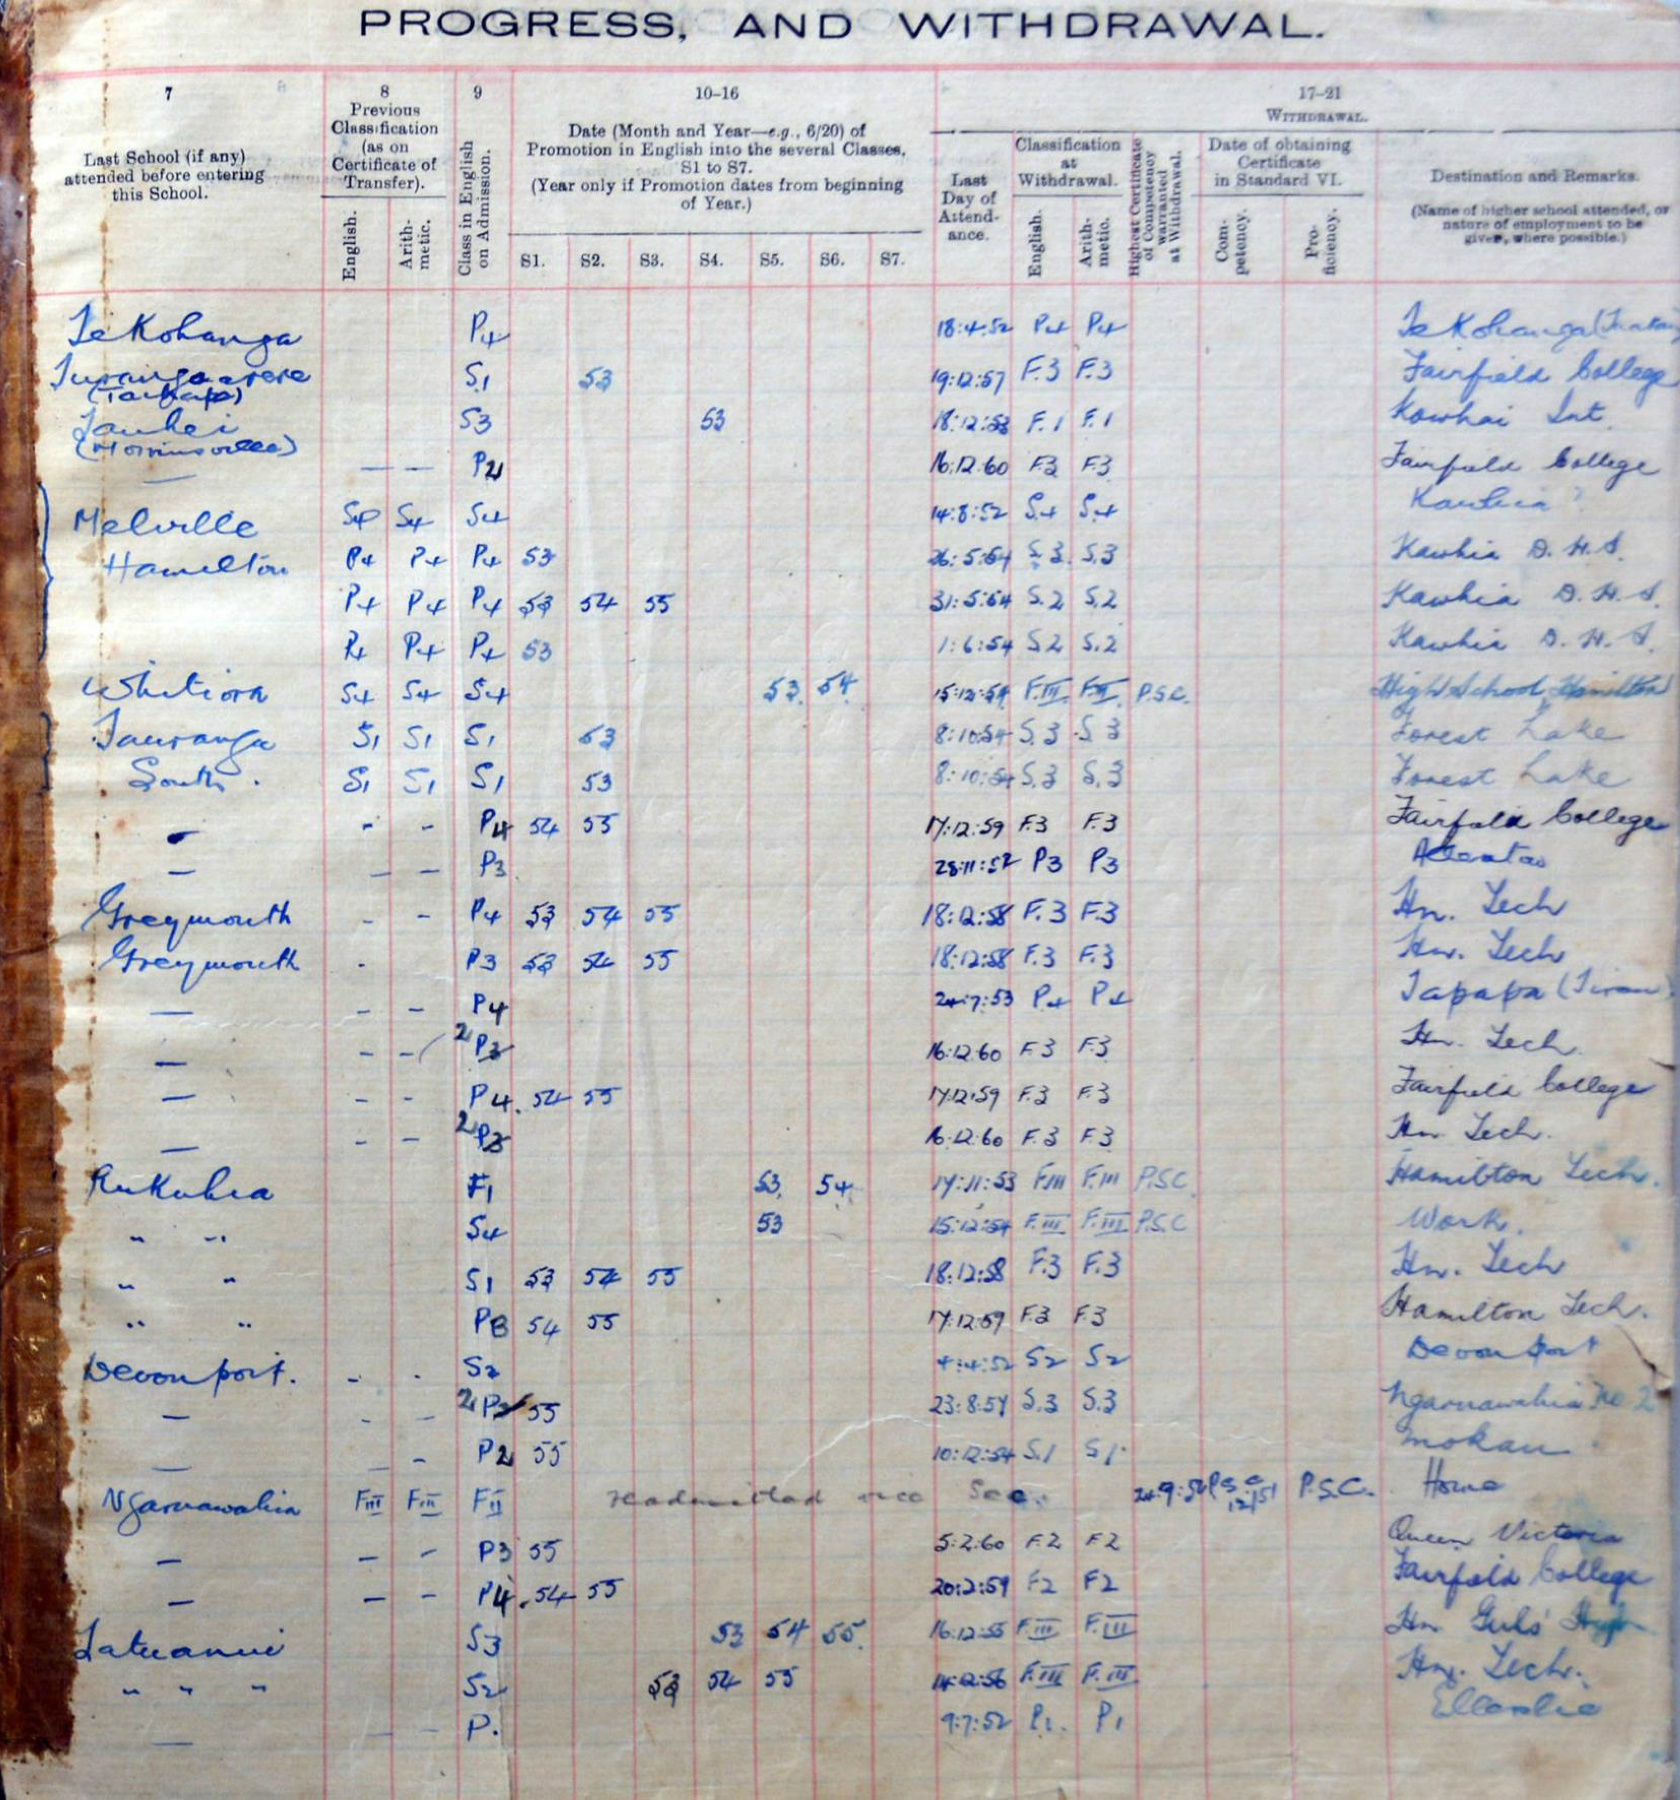 PROGRESS, AND WITHDRAWAL.
7 8 9 10-16 17-21
Last School (if any) attended before entering this School.
Previous Classification (as on Certificate of Transfer).
English. Arithmetic.
Class in English on Admission.
Date (Month and Year—e.g., 6/20) of Promotion in English into the several Classes, S1 to S7.
(Year only if Promotion dates from beginning of Year.)
S1. S2. S3. S4. S5. S6. S7.
WITHDRAWAL.
Last Day of Attendance.
Classification at Withdrawal.
English. Arithmetic.
Highest Certificate of Competency warranted at Withdrawal.
Date of obtaining Certificate in Standard VI.
Competency. Proficiency.
Destination and Remarks.
(Name of higher school attended, or nature of employment to be given, where possible.)
Te Kohanga P4 18:4:52 P4 P4 Te Kohanga
S1 53 19:12:57 F.3 F.3 Fairfield College
(Taihape)
Tauhei S3 53 18:12:53 F.1 F.1 Kowhai Int.
(Morrinsville)
— — — P2 16:12:60 F3 F.3 Fairfield College
Melville S4 S4 S4 14:8:52 S4 S4 Kawhia ?
Hamilton P4 P4 P4 53 26:5:54 S.3 S.3 Kawhia D.H.S.
P4 P4 P4 53 54 55 31:5:54 S.2 S.2 Kawhia D.H.S.
P4 P4 P4 53 1:6:54 S2 S.2 Kawhia D.H.S.
Whitiora S4 S4 S4 53. 54. 15:12:54 F.III F.III P.S.C. High School Hamilton
Tauranga S1 S1 S1 53 8:10:54 S.3 S3 Forest Lake
South. S1 S1 S1 53 8:10:54 S.3 S.3 Forest Lake
— - - P4 54 55 17:12:59 F.3 F.3 Fairfield College
— — — P3 28:11:52 P3 P3
Greymouth - - P4 53 54 55 18:12:58 F.3 F.3 Hn. Tech
Greymouth - P3 53 54 55 18:12:58 F.3 F.3 Hn. Tech
— - - P4 24:7:53 P4 P4 Tapapa
— - - 2 P3 16:12:60 F.3 F.3 Hn. Tech.
— - - P4. 54 55 17:12:59 F.3 F.3 Fairfield College
— - - 2 P3 16:12:60 F.3 F.3 Hn Tech.
Rukuhia F1 53. 54. 17:11:53 F.III F.III P.S.C. Hamilton Tech.
" " S4 53 15:12:54 F.III F.III P.S.C Work.
" " S1 53 54 55 18:12:58 F.3 F.3 Hn. Tech
" " P3 54 55 17:12:59 F.3 F.3 Hamilton Tech.
Devonport. - - S2 4:4:52 S2 S2 Devonport
— - - 2 P3 55 23:8:57 S.3 S.3 Ngaruawahia No 2
— — - P2 55 10:12:54 S.1 S1 Mokau
Ngaruawahia F.III F.III F.II Readmitted 24:9:52 P.S.C 12/51 P.S.C. Home
— — - P3 55 5:2:60 F.2 F2 Queen Victoria
— — - P4. 54 55 20:2:59 F2 F2 Fairfield College
Tatuanui S3 53 54 55. 16:12:55 F.III F.III Hn Girls' High
" " " S2 53 54 55 F.III F.III Hn. Tech.
— — - P. 9:7:52 P1. P1 Ellerslie